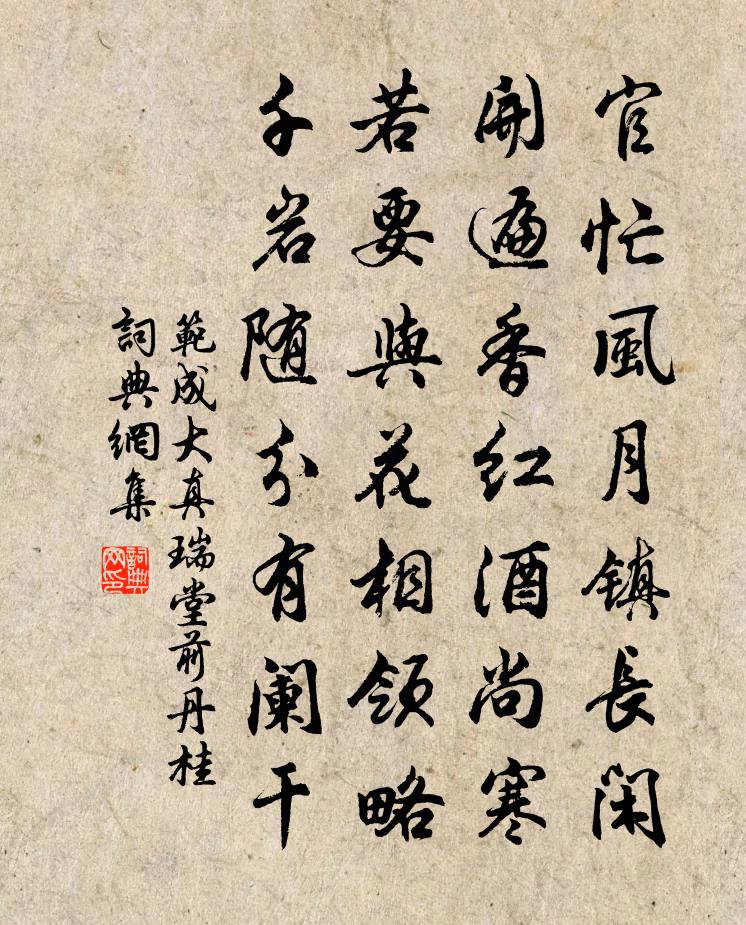 官忙風月镇長閑
開遍香红酒尚寒
若要與花相領略
千岩随分有阑干
範成大真瑞堂前丹桂
詞典網集
詞典網印